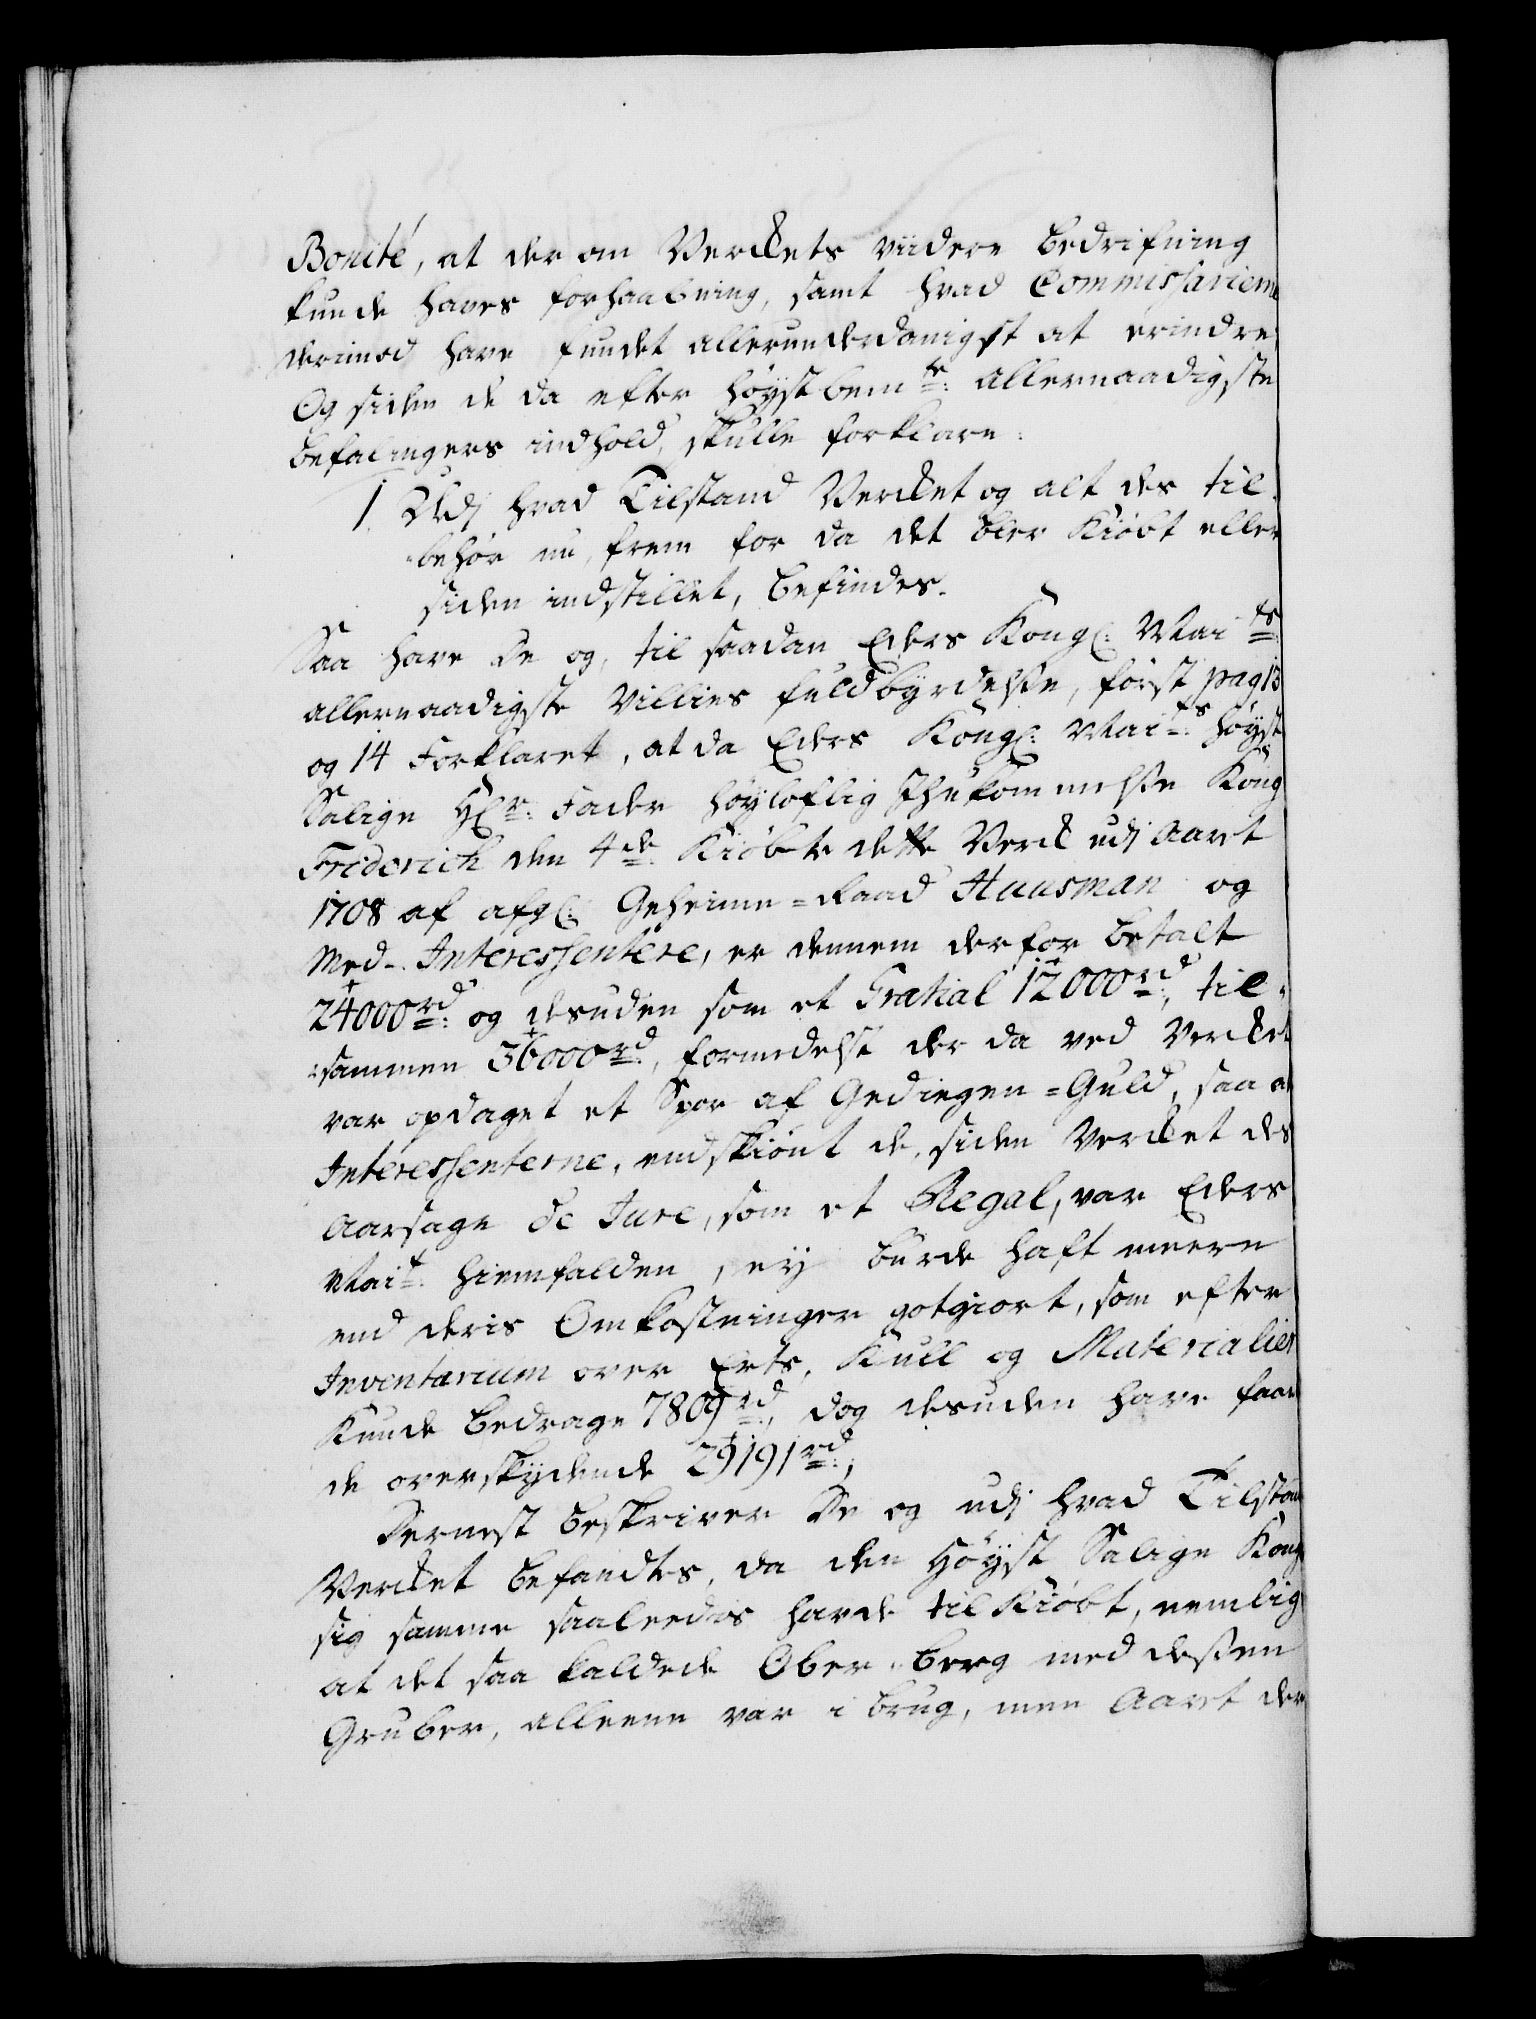 Bonité, at der om Verckets viidere bedrifning
kunde haves forhaabning, samt hvad Commissarierne
derimod have fundet allerunderdanigst at erindre
Og siden de da efter høystbem:te allernaadigste
befalingers indhold, skulle forklare:
1. Udj hvad Tilstand Vercket og alt des til-
behør nu, frem for da det blev Kiøbt eller
siden indstillet, befindes.
Saa have De og, til saadan Eders Kongl: Mai:ts
allernaadigste Villies fuldbyrdelse, først pag 13
og 14 Forklaret, at da Eders Kongl: Mai:ts høyst
Salige Hr: Fader høyloflig Ihukommelse Kong
Friderich den 4de Kiøbte dette Verck udj Aaret
1708 af afgl: Geheime-Raad Huusman og
Med-Interessentere, er dennem derfor betalt
24000 rd: og desuden som et Gratial 12000 rd:, til-
sammen 36000 rd:, formedelst der da ved Vercket
var opdaget et Spor af Gediegen-Guld, saa at
Interessenterne, endskiønt de, siden Vercket des
Aarsage de Jure, som et Regal, var Eders
Mai:t hiemfalden, ey burde haft meere
end deris Omkostninger gotgiort, som efter
Inventarium over Erts, Kull og Materialier
Kunde bedrage 7809 rd:, dog desuden have faaet
de overskydende 29191 rd:,
Dernest beskriver De og udj hvad Tilstand
Vercket befandtes, da den Høyst Salige Kong
sig samme saaleedes havde til Kiøbt, nemlig
at det saa kaldede Ober-berg med dessen
Gruber, alleene var i brug, men Aaret der